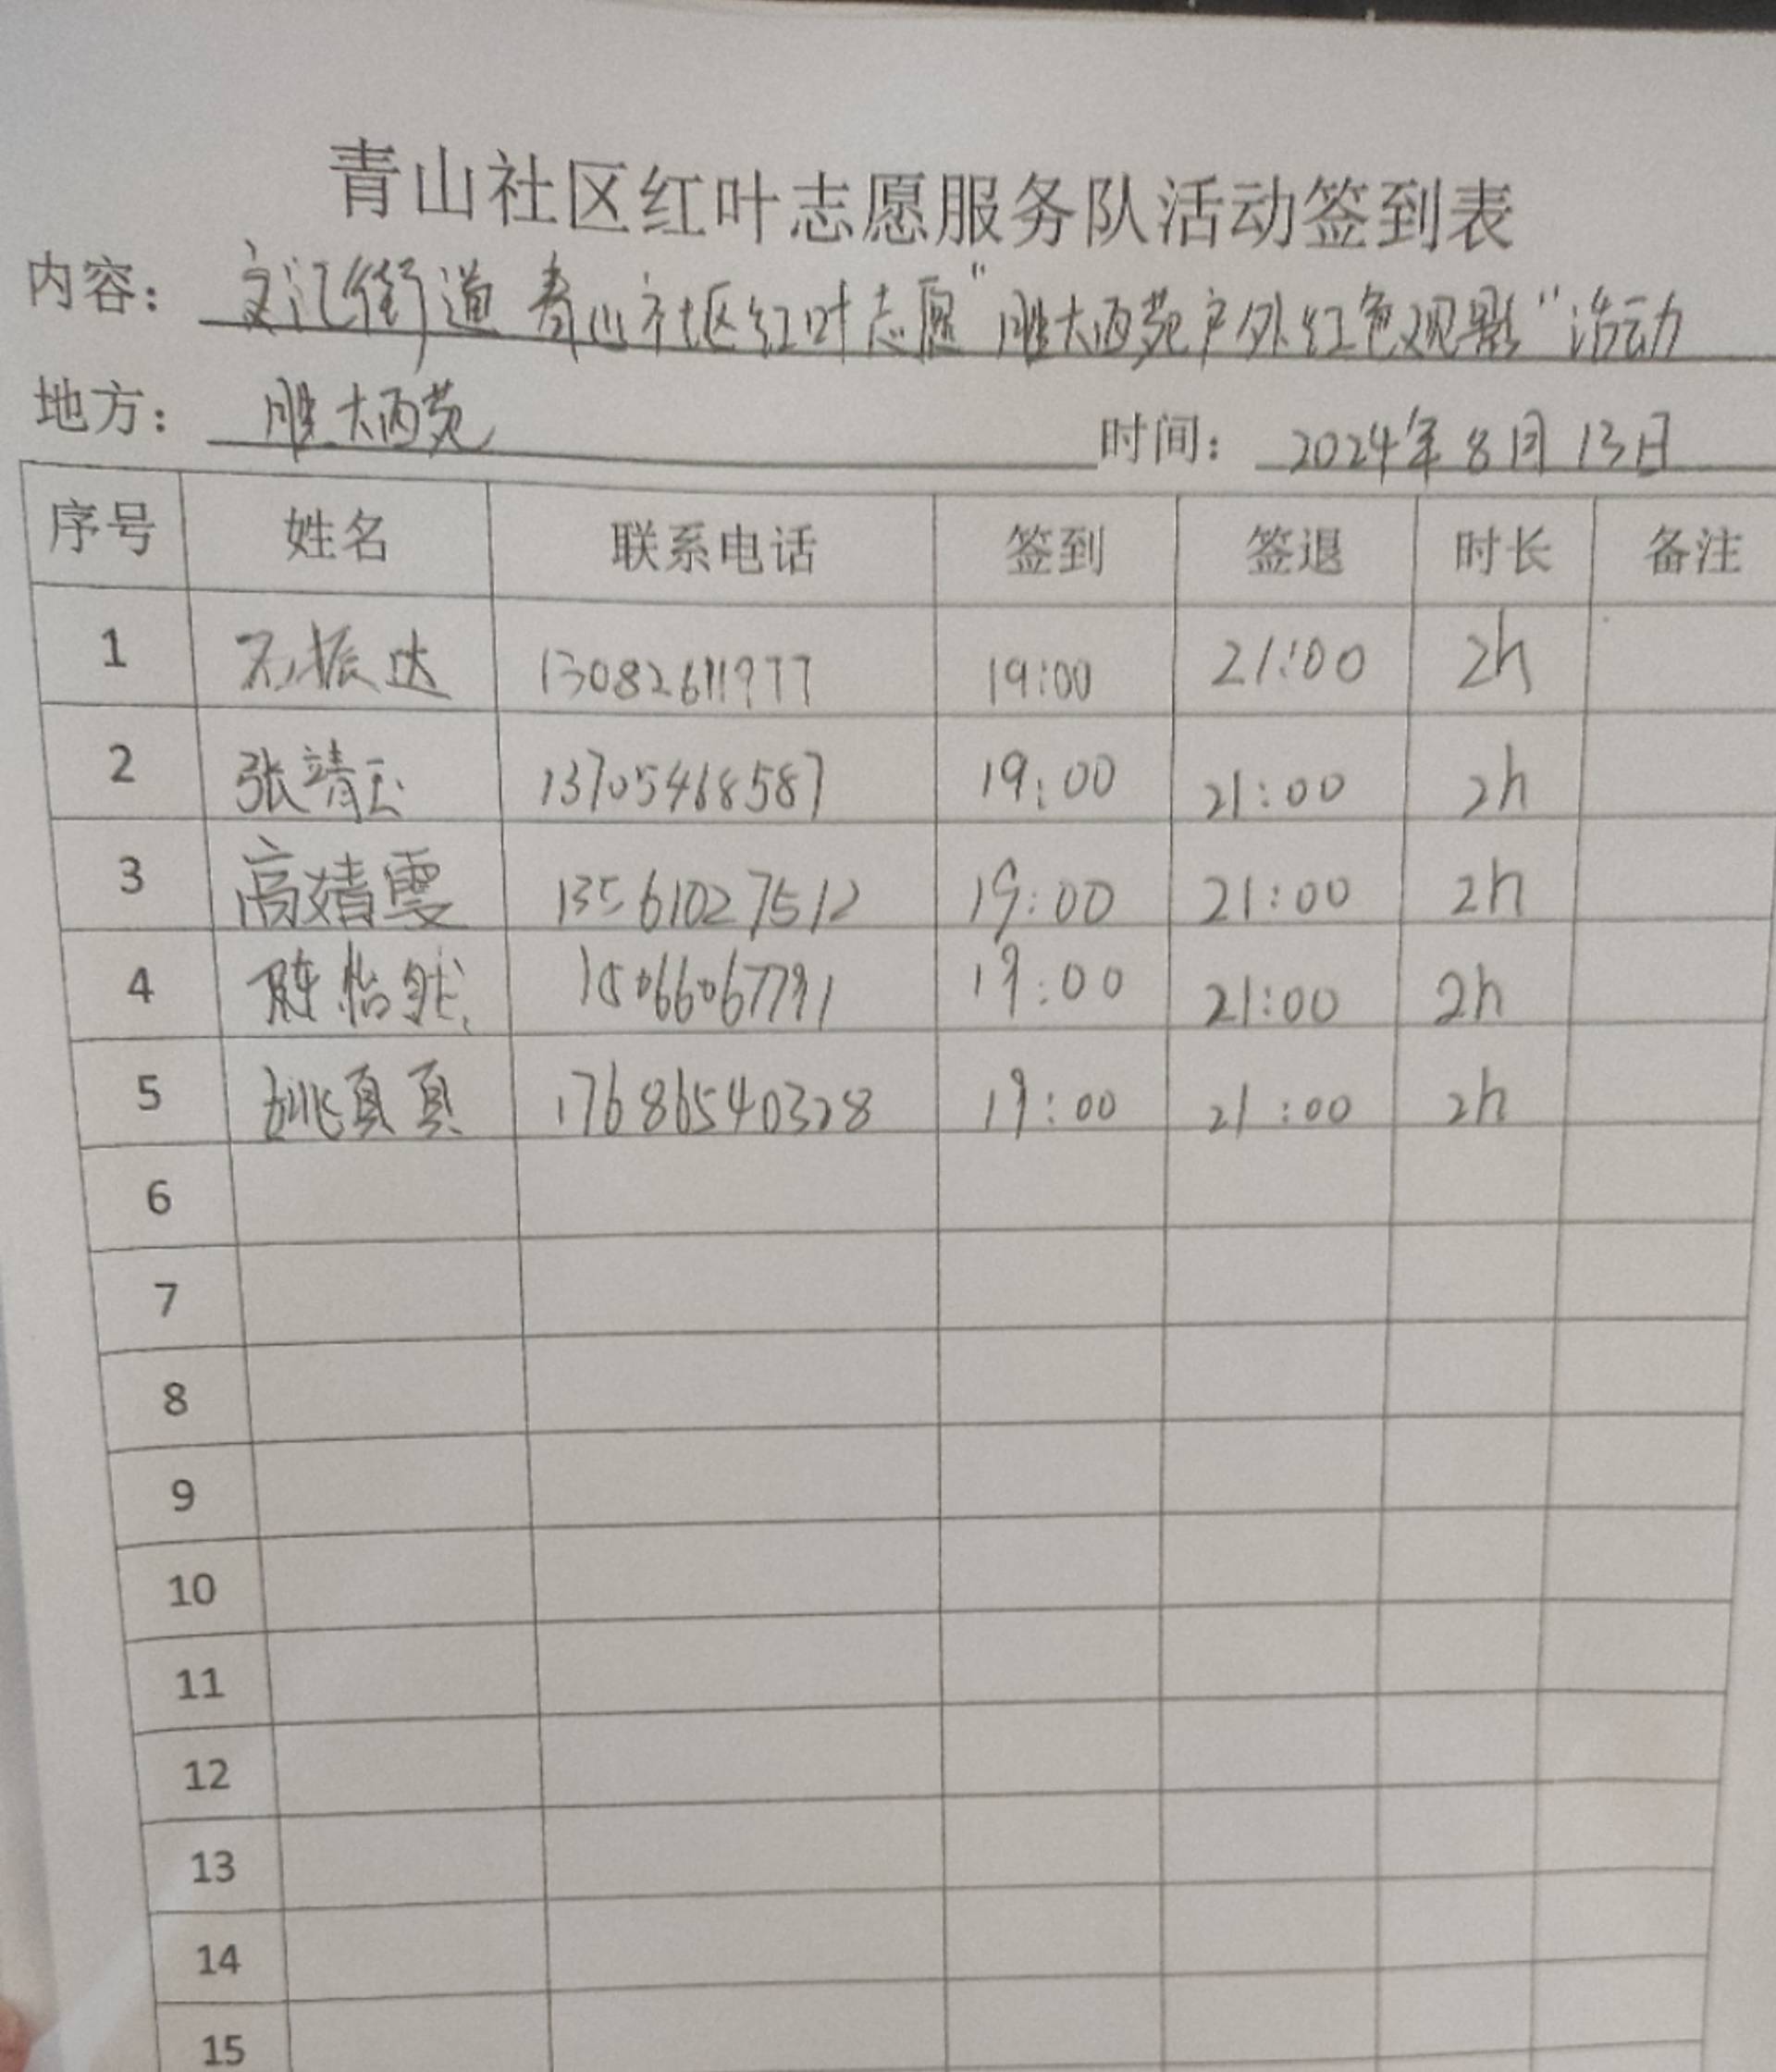 青山社区红叶志愿服务队活动签到表
内容： 文汇街道 青山社区红叶志愿"胜大西苑户外红色观影"活动
地方： 胜大西苑 时间： 2024年8月13日
序号 姓名 联系电话 签到 签退 时长 备注
1 石振达 13082611977 19:00 21:00 2h
2 张靖玉 13705468587 19:00 21:00 2h
3 高婧雯 13561027512 19:00 21:00 2h
4 陈怡然 15066067791 19:00 21:00 2h
5 姚真真 17686540328 19:00 21:00 2h
6
7
8
9
10
11
12
13
14
15